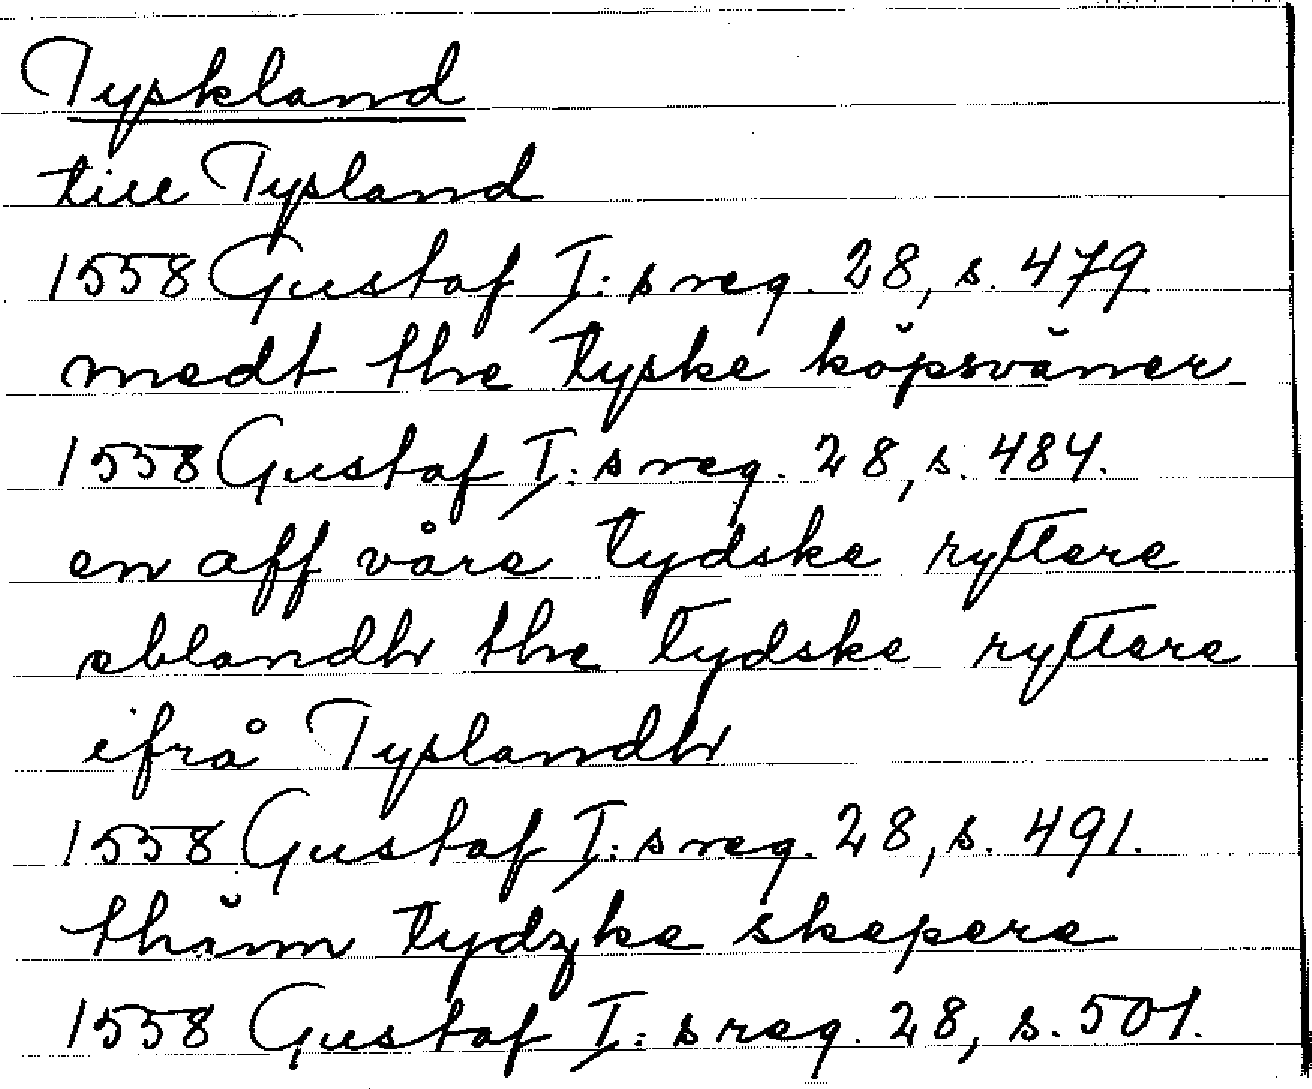 Tyskland
till Tysland
1558 Gustaf I:s reg. 28, s. 479
medt the tyske köpsväner
1558 Gustaf I:s reg. 28, s. 484.
en aff våre tydske ryttere
eblandh the tydske ryttere
ifrå Tyslandh
1558 Gustaf I:s reg. 28, s. 491.
thäm tydzke skepere
1558 Gustaf I:s reg. 28, s. 501.